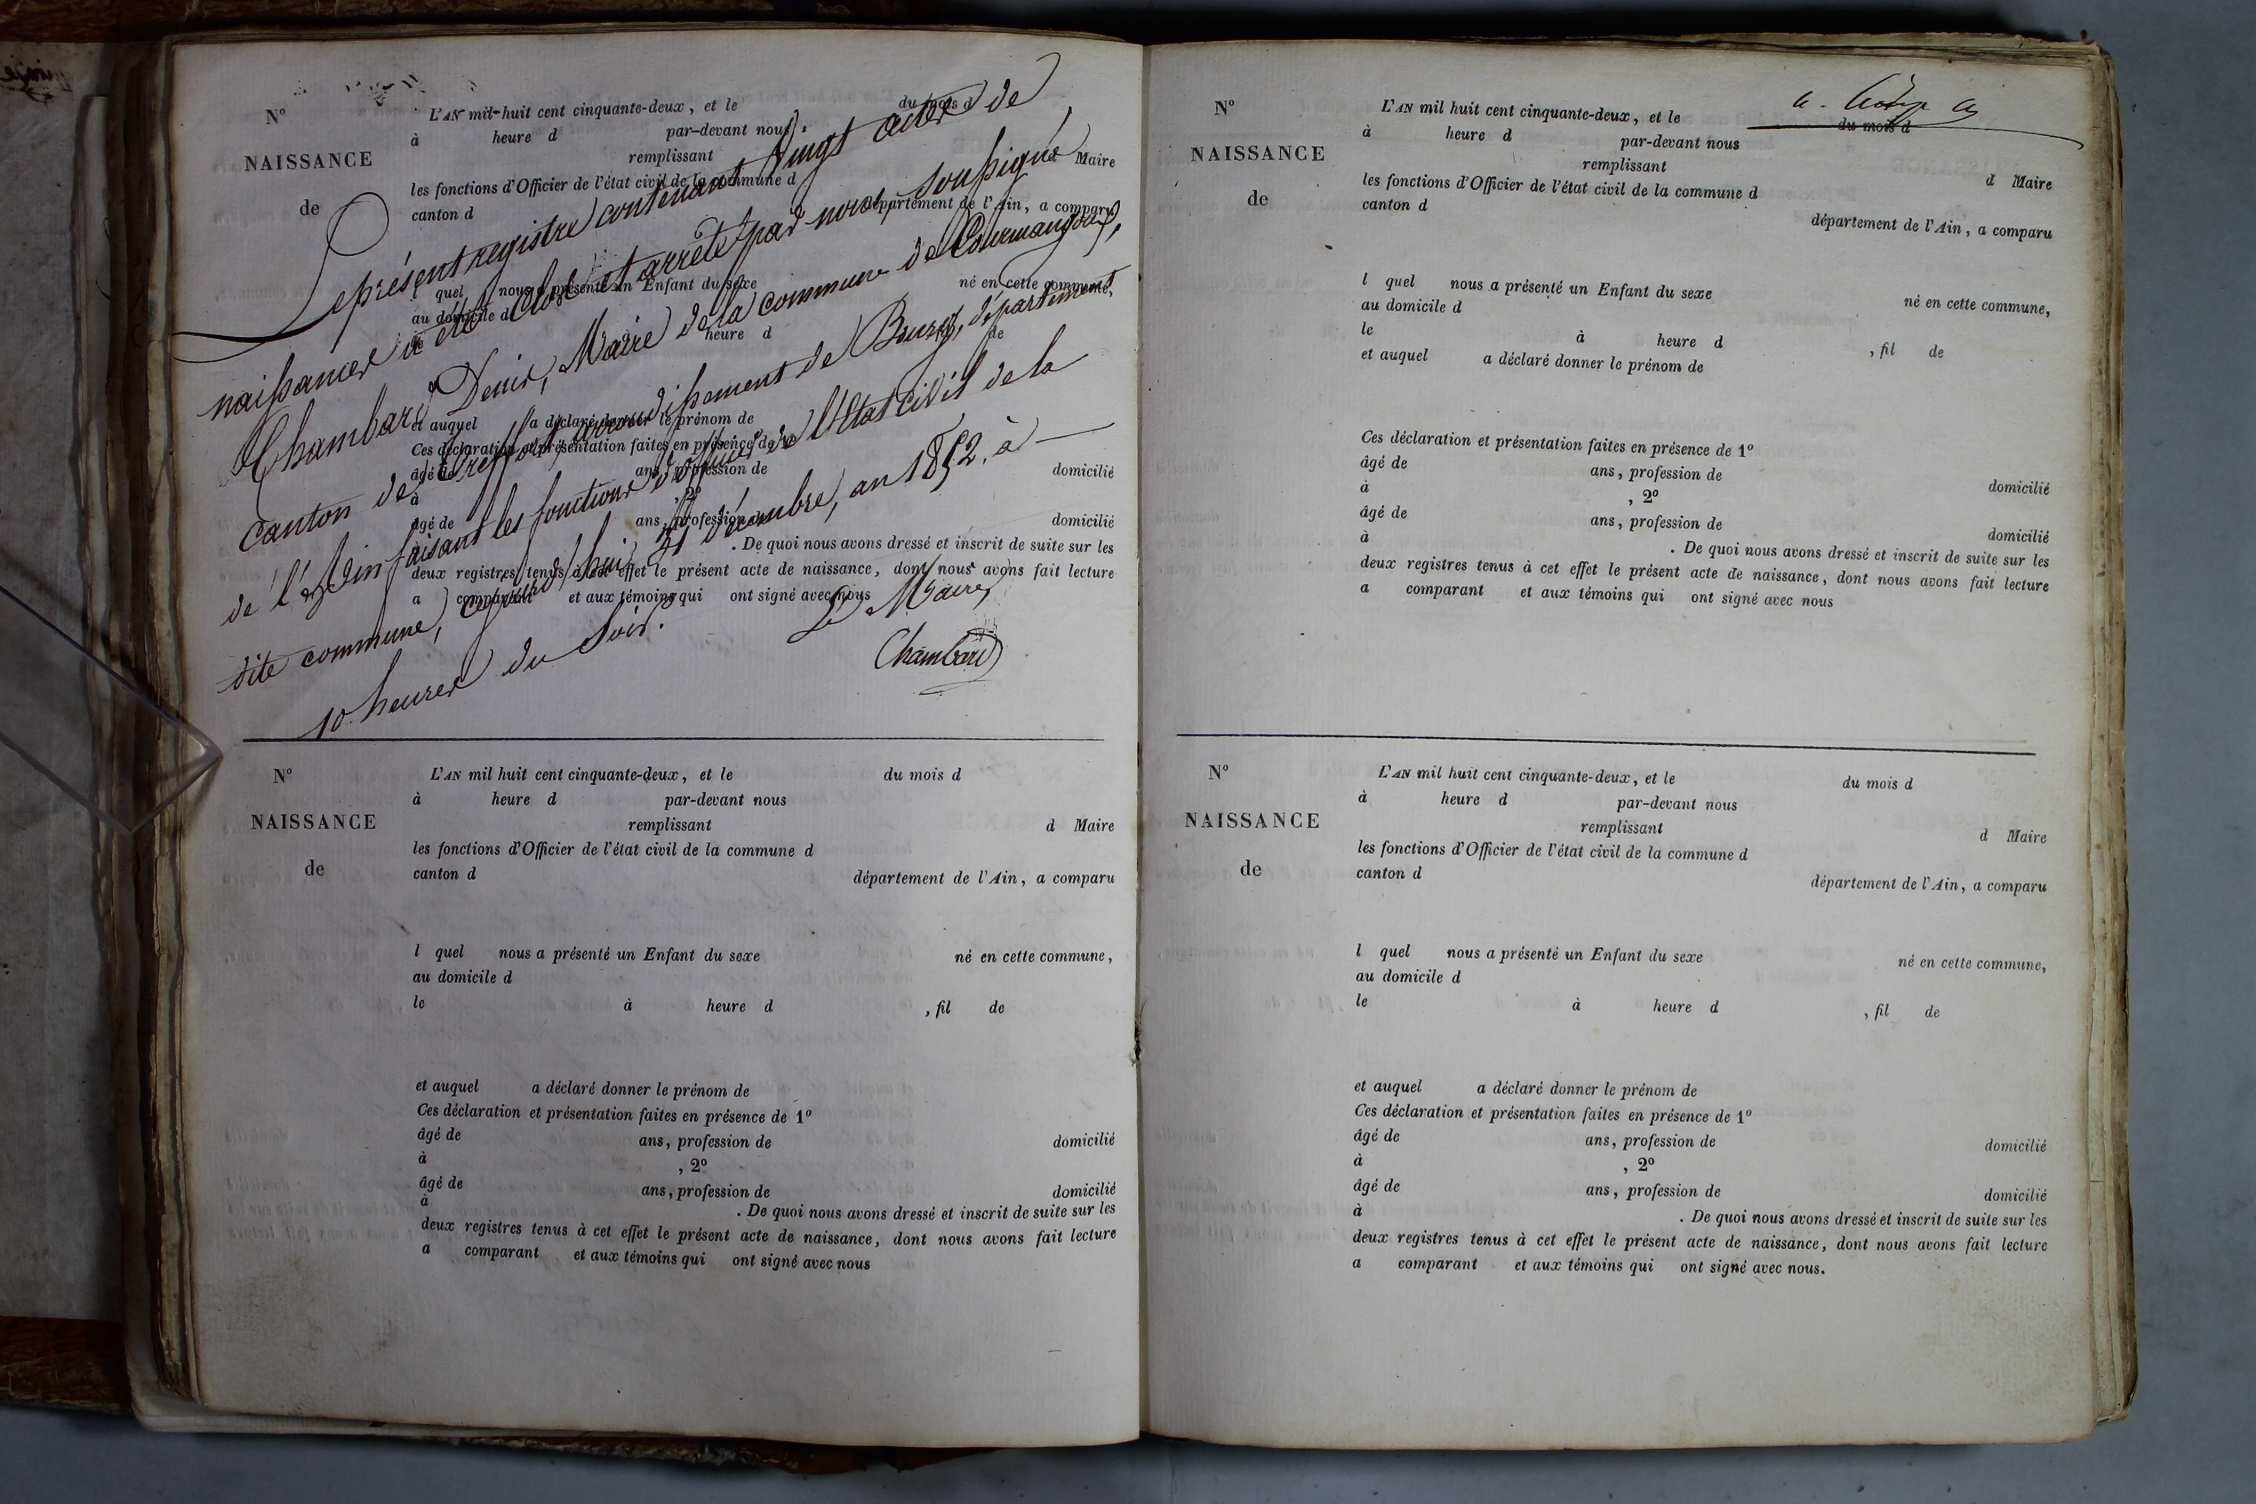 Nº
NAISSANCE
de
L'AN mil-huit cent cinquante-deux, et le du mois d
à heure d par-devant nous
remplissant d Maire
les fonctions d'Officier de l'état civil de la commune d
canton d département de l'Ain, a comparu
l quel nous a présenté un Enfant du sexe né en cette commune,
au domicile d
le heure d de
et auquel a déclaré donner le prénom de
Ces déclaration et présentation faites en présence de 1º
âgé de ans, profession de domicilié
à , 2º
âgé de ans, profession de domicilié
. De quoi nous avons dressé et inscrit de suite sur les
deux registres tenus à cet effet le présent acte de naissance, dont nous avons fait lecture
a comparant et aux témoins qui ont signé avec nous
Le présent registre contenant vingt actes de
naissances a été clos et arrêté par nous, soussigné
Chambard Denis, Maire de la commune de Courmangoux,
canton de Treffort, arrondissement de Bourg, département
de l'Ain faisant les fonctions d'officier de l'Etat civil de la
dite commune, cejourd'hui 31 décembre, an 1852, à
10 heures du soir.
Le Maire,
Chambard
Nº
NAISSANCE
de
L'AN mil huit cent cinquante-deux, et le du mois d
à heure d par-devant nous
remplissant d Maire
les fonctions d'Officier de l'état civil de la commune d
canton d département de l'Ain, a comparu
l quel nous a présenté un Enfant du sexe né en cette commune,
au domicile d
le à heure d , fil de
et auquel a déclaré donner le prénom de
Ces déclaration et présentation faites en présence de 1º
âgé de ans, profession de domicilié
à , 2º
âgé de ans, profession de domicilié
à . De quoi nous avons dressé et inscrit de suite sur les
deux registres tenus à cet effet le présent acte de naissance, dont nous avons fait lecture
a comparant et aux témoins qui ont signé avec nous
Nº
NAISSANCE
de
L'AN mil huit cent cinquante-deux, et le du mois d
à heure d par-devant nous
remplissant d Maire
les fonctions d'Officier de l'état civil de la commune d
canton d département de l'Ain, a comparu
l quel nous a présenté un Enfant du sexe né en cette commune,
au domicile d
le à heure d , fil de
et auquel a déclaré donner le prénom de
Ces déclaration et présentation faites en présence de 1º
âgé de ans, profession de domicilié
à , 2º
âgé de ans, profession de domicilié
à . De quoi nous avons dressé et inscrit de suite sur les
deux registres tenus à cet effet le présent acte de naissance, dont nous avons fait lecture
a comparant et aux témoins qui ont signé avec nous
Nº
NAISSANCE
de
L'AN mil huit cent cinquante-deux, et le du mois d
à heure d par-devant nous
remplissant d Maire
les fonctions d'Officier de l'état civil de la commune d
canton d département de l'Ain, a comparu
l quel nous a présenté un Enfant du sexe né en cette commune,
au domicile d
le à heure d , fil de
et auquel a déclaré donner le prénom de
Ces déclaration et présentation faites en présence de 1º
âgé de ans, profession de domicilié
à , 2º
âgé de ans, profession de domicilié
à . De quoi nous avons dressé et inscrit de suite sur les
deux registres tenus à cet effet le présent acte de naissance, dont nous avons fait lecture
a comparant et aux témoins qui ont signé avec nous.